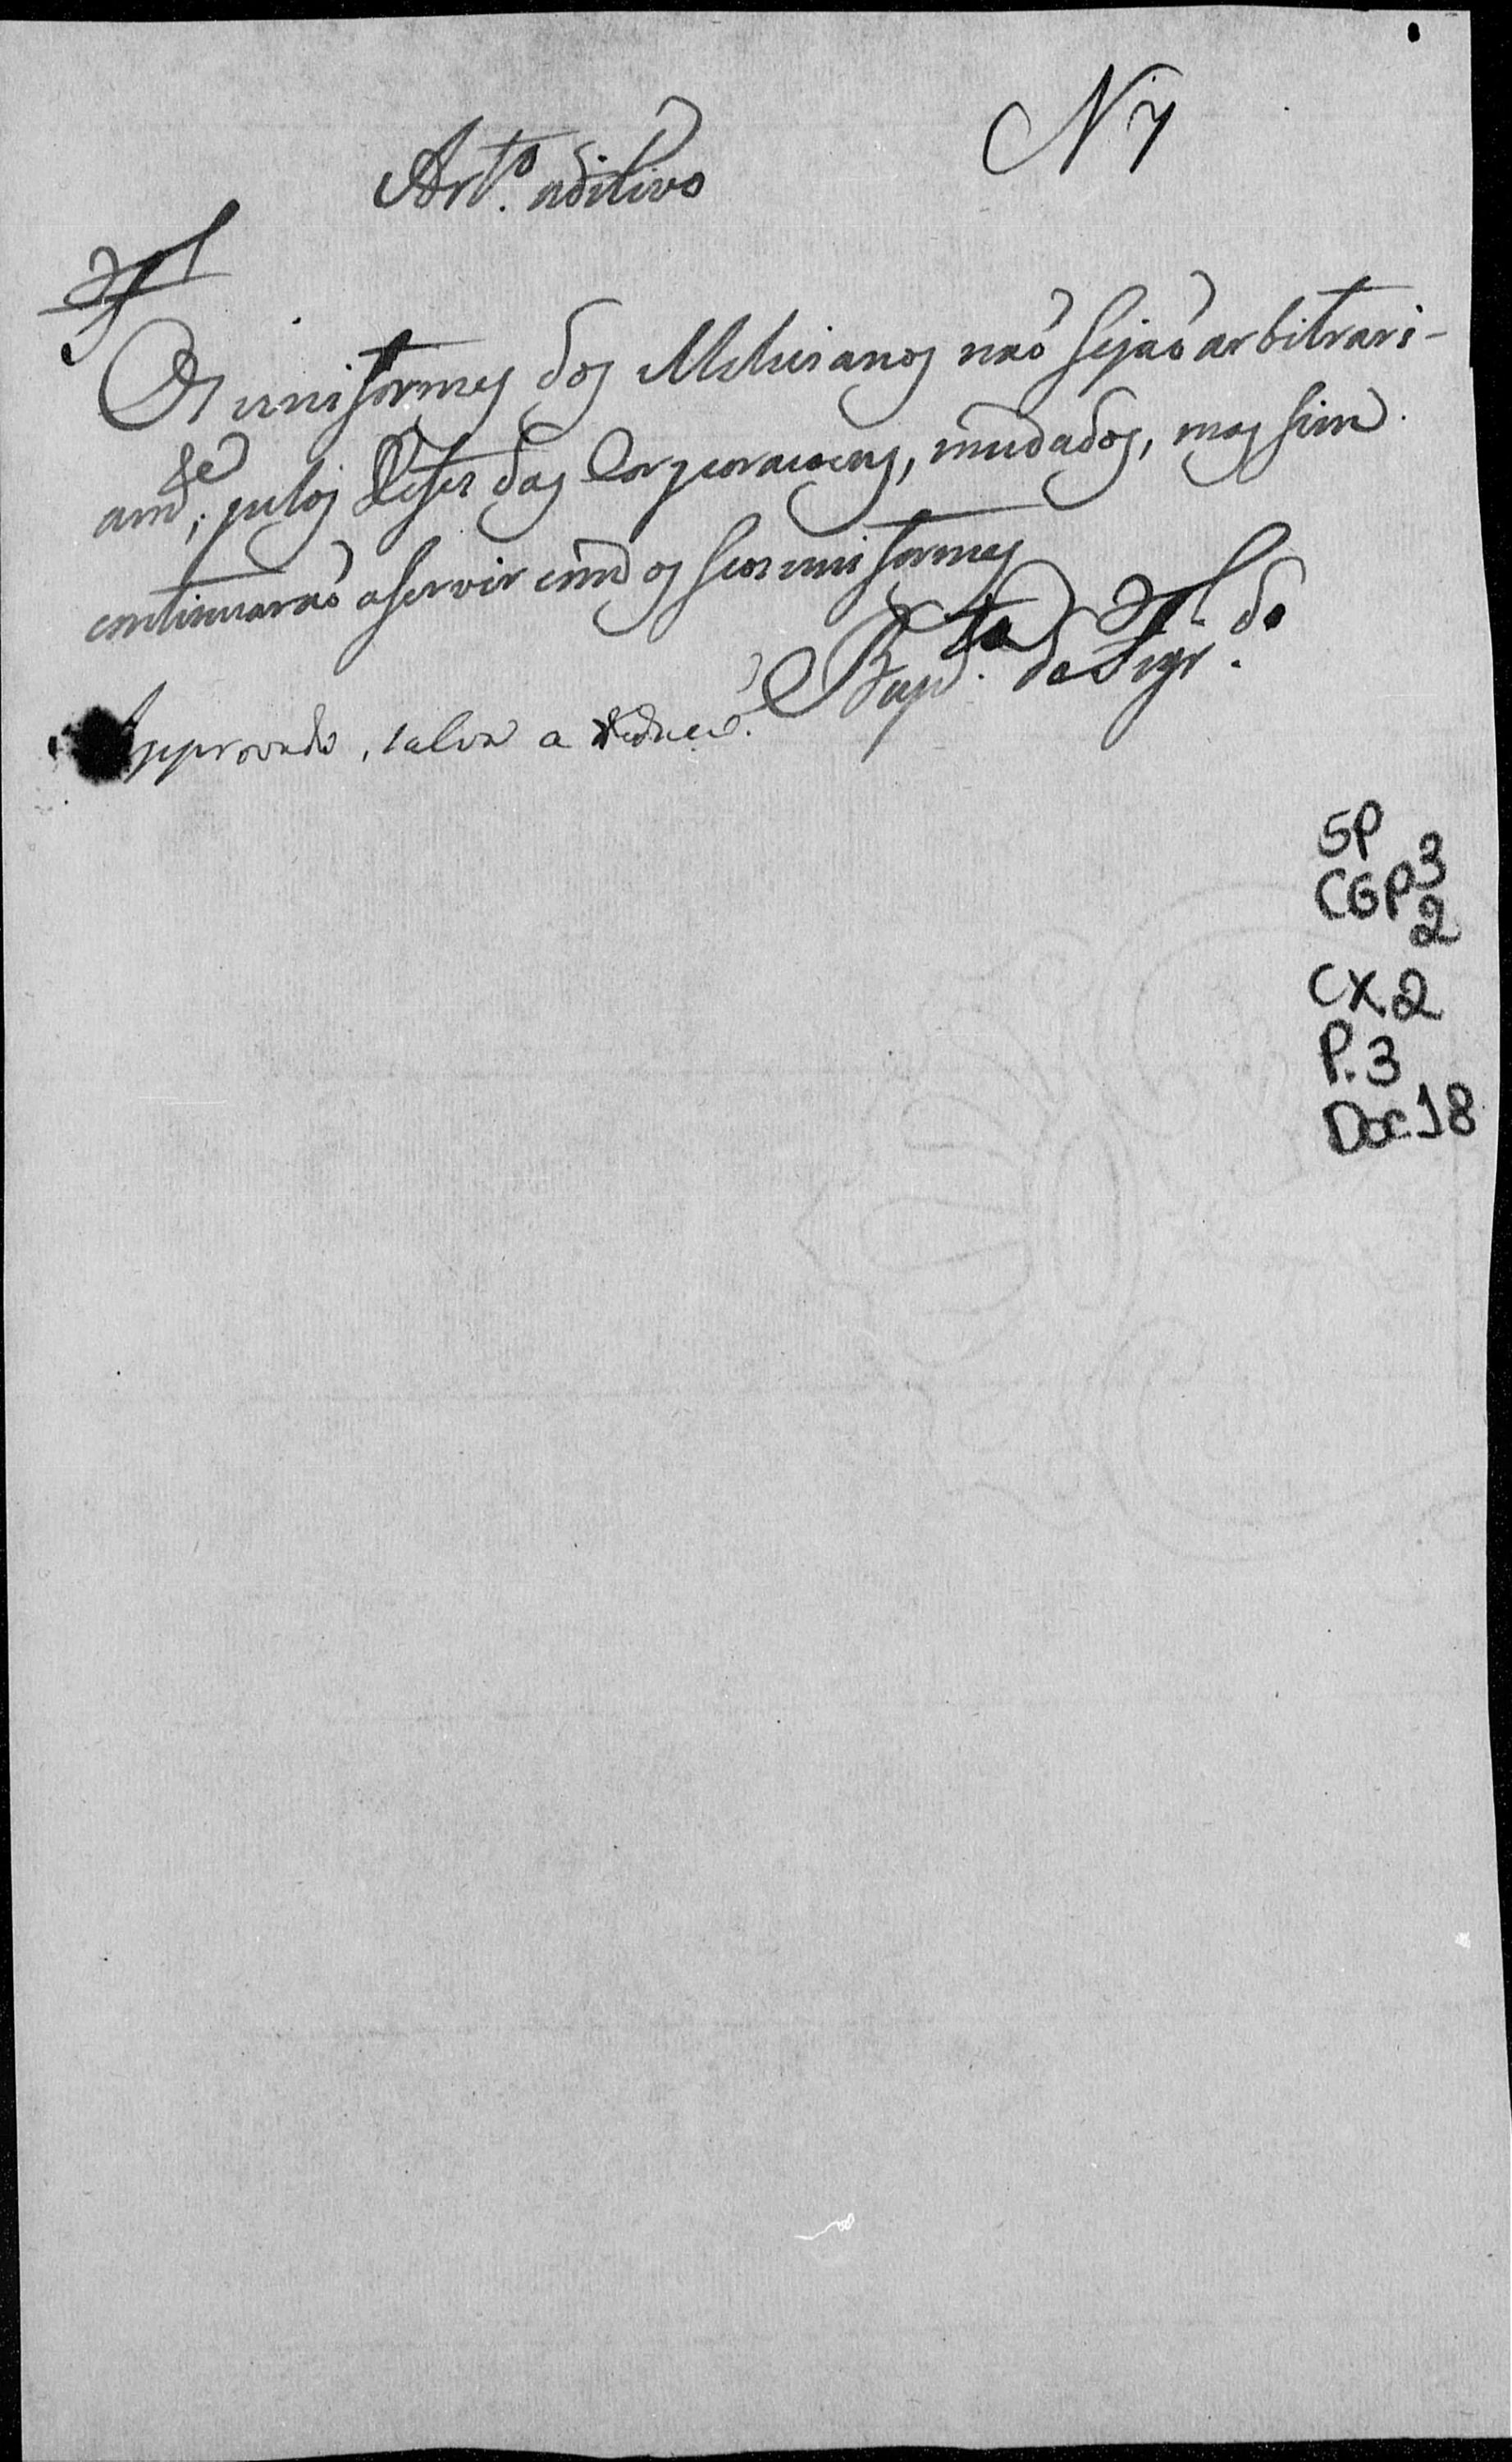 N 7
Art.º aditivo
Os uniformes dos Melicianos naõ sejaõ arbitrari-
am.te, pelos Xefes das Corporacoens, mudados, mas sim
continuaraõ a servir com os seos uniformes
Bap.ta de Figr.do
Approvado, salva a redacçaõ.
SP
CGP 3
2
CX.2
P.3
Doc.18